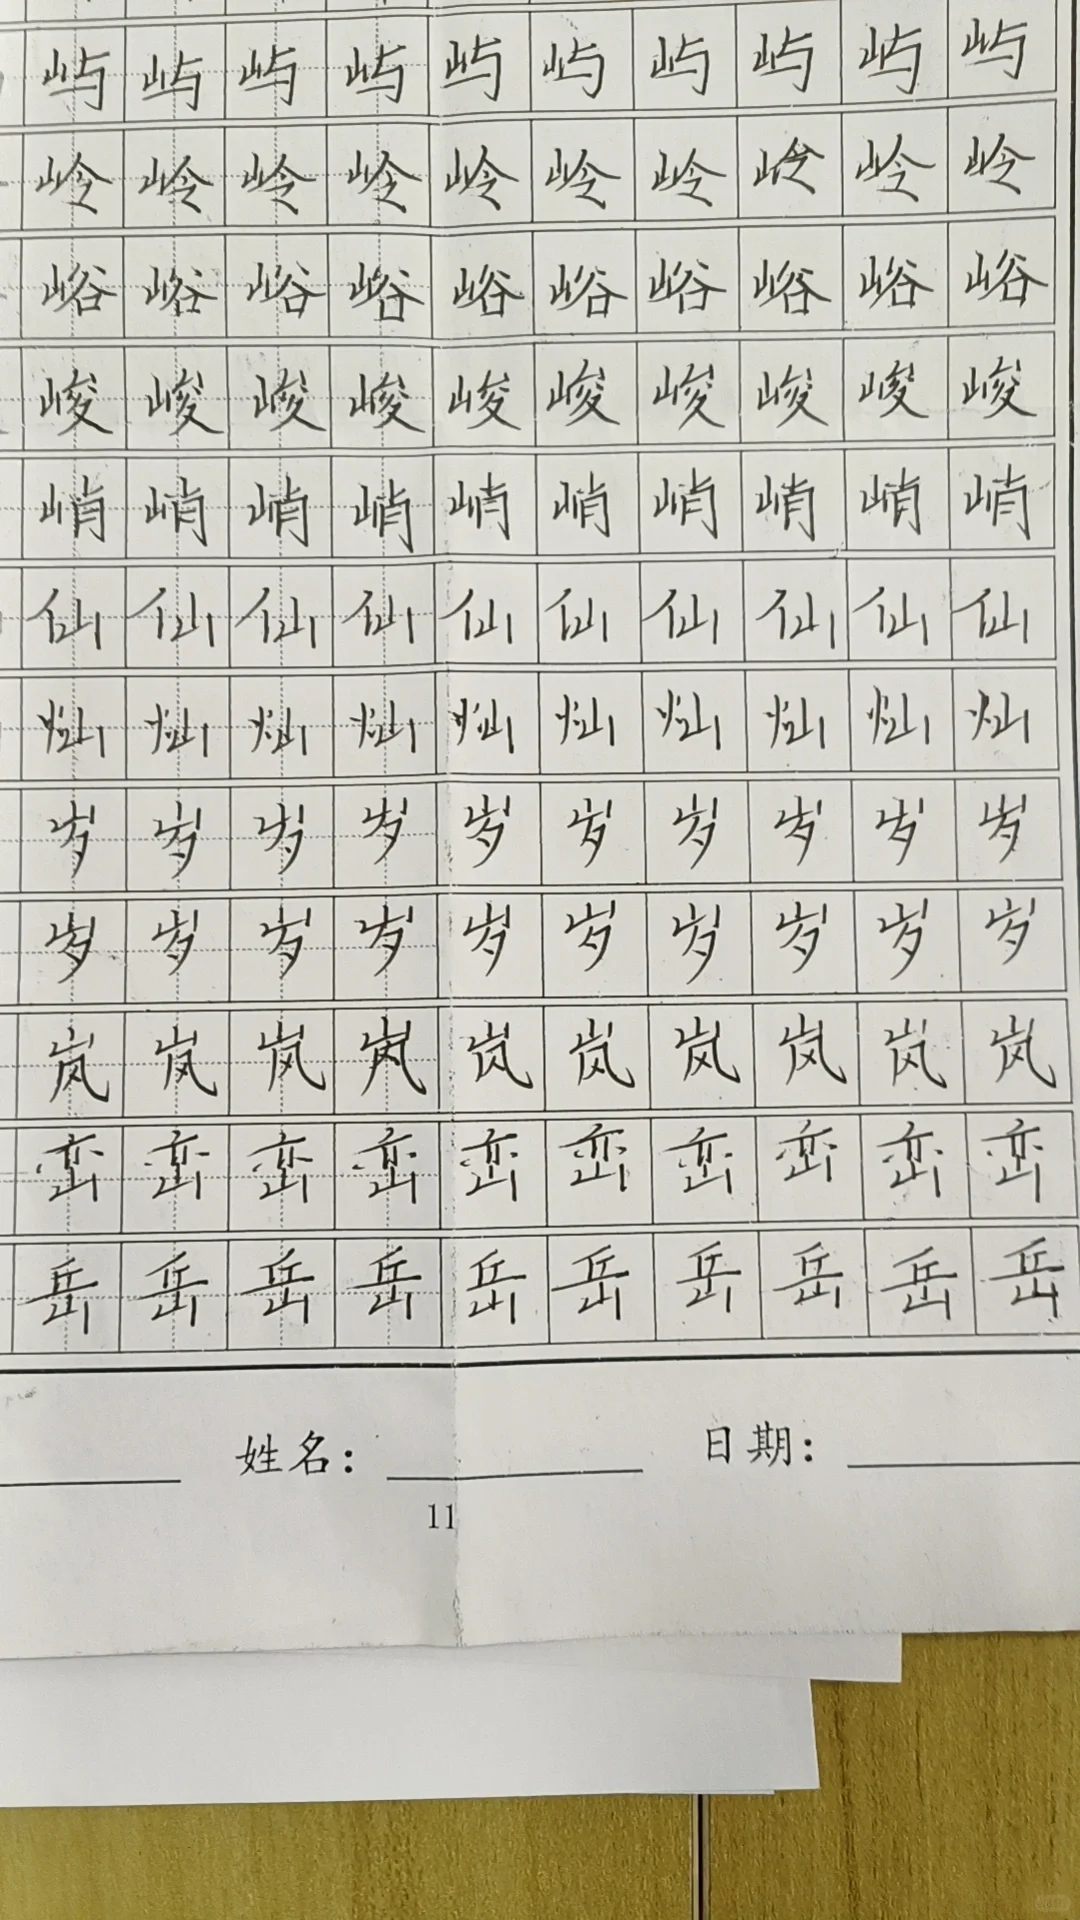 屿屿屿屿屿屿屿屿屿屿
岭岭岭岭岭岭岭岭岭岭
峪峪峪峪峪峪峪峪峪峪
峻峻峻峻峻峻峻峻峻峻
峭峭峭峭峭峭峭峭峭峭
仙仙仙仙仙仙仙仙仙仙
灿灿灿灿灿灿灿灿灿灿
岁岁岁岁岁岁岁岁岁岁
岁岁岁岁岁岁岁岁岁岁
岚岚岚岚岚岚岚岚岚岚
峦峦峦峦峦峦峦峦峦峦
岳岳岳岳岳岳岳岳岳岳
姓名： 日期：
11